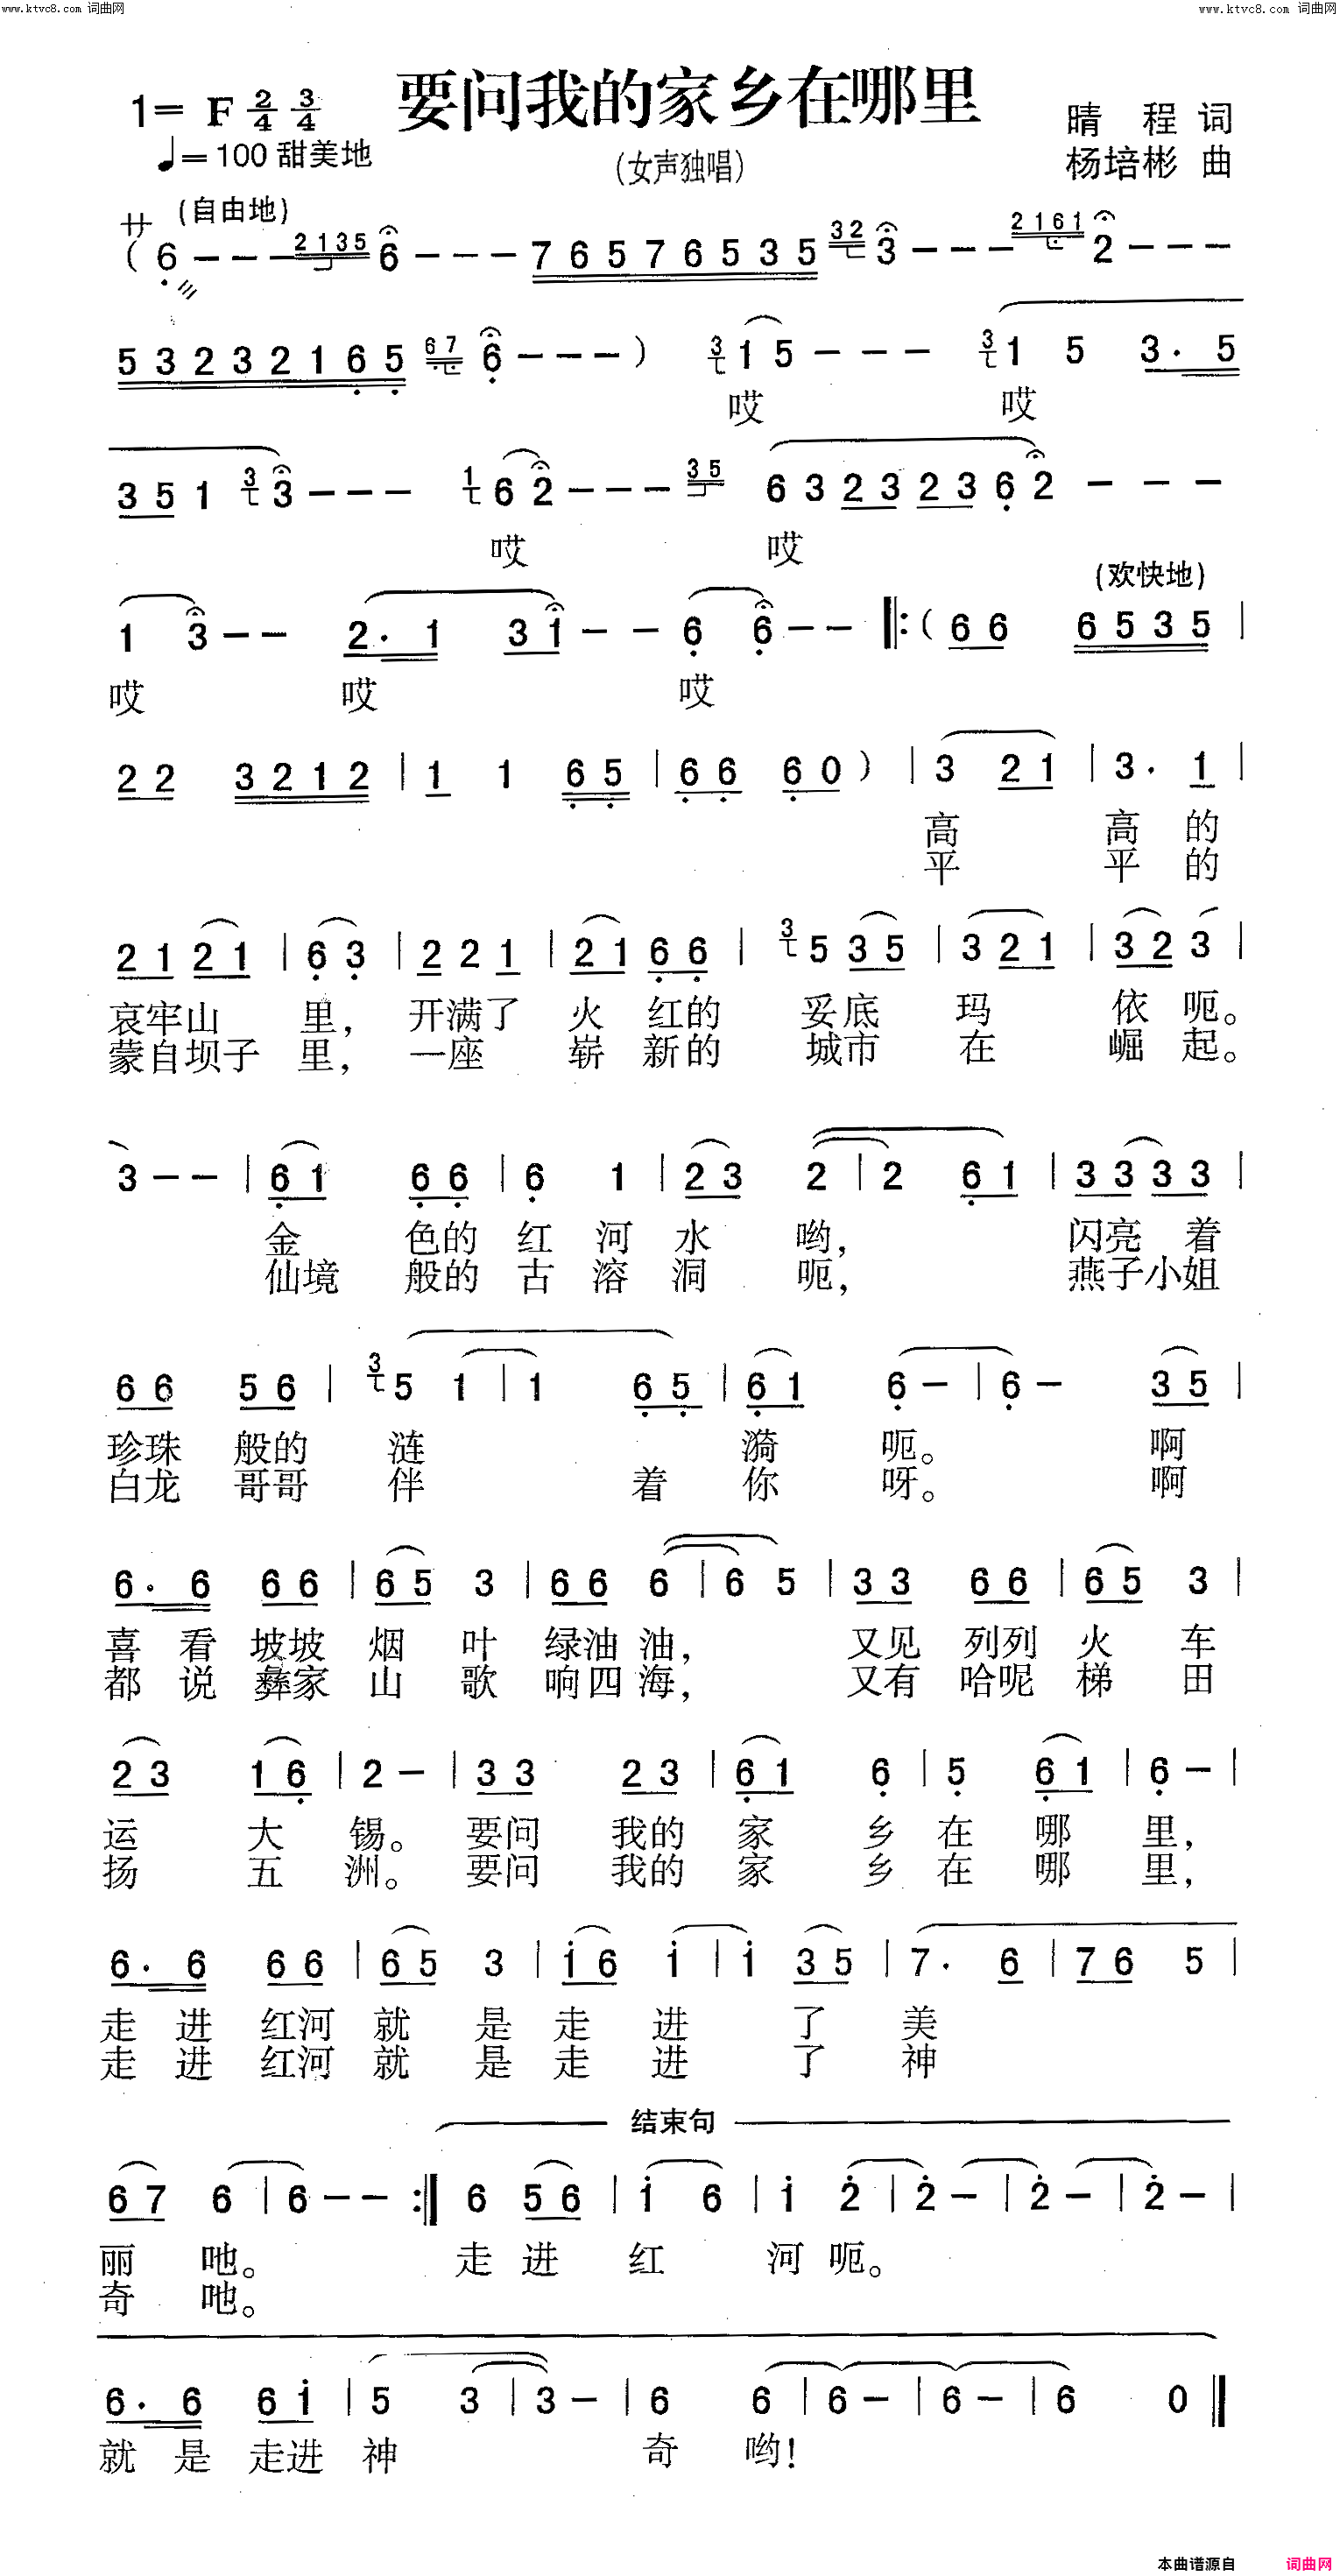 www.ktvc8.com 词曲网 www.ktvc8.com 词曲网
要问我的家乡在哪里
1= F 2/4 3/4
♩=100 甜美地
(女声独唱)
晴 程 词
杨培彬 曲
(自由地)
廾 ( 6 - - - 2135 6 - - - 7 6 5 7 6 5 3 5 32 3 - - - 2161 2 - - -
5 3 2 3 2 1 6 5 67 6 - - - ) 3 1 5 - - - 3 1 5 3. 5
哎 哎
3 5 1 3 3 - - - 1 6 2 - - - 35 6 3 2 3 2 3 6 2 - - -
哎 哎
(欢快地)
1 3 - - 2. 1 3 1 - - 6 6 - - ‖: ( 6 6 6 5 3 5 |
哎 哎 哎
2 2 3 2 1 2 | 1 1 6 5 | 6 6 6 0 ) | 3 2 1 | 3. 1 |
高 高 的
平 平 的
2 1 2 1 | 6 3 | 2 2 1 | 2 1 6 6 | 3 5 3 5 | 3 2 1 | 3 2 3 |
哀牢山 里, 开满了 火 红的 妥底 玛 依 呃。
蒙自坝子 里, 一座 崭 新的 城市 在 崛 起。
3 - - | 6 1 6 6 | 6 1 | 2 3 2 | 2 6 1 | 3 3 3 3 |
金 色的 红 河 水 哟, 闪亮 着
仙境 般的 古 溶 洞 呃, 燕子小姐
6 6 5 6 | 3 5 1 | 1 6 5 | 6 1 6 - | 6 - 3 5 |
珍珠 般的 涟 漪 呃。 啊
白龙 哥哥 伴 着 你 呀。 啊
6. 6 6 6 | 6 5 3 | 6 6 6 | 6 5 | 3 3 6 6 | 6 5 3 |
喜 看 坡坡 烟 叶 绿油 油, 又见 列列 火 车
都 说 彝家 山 歌 响四 海, 又有 哈呢 梯 田
2 3 1 6 | 2 - | 3 3 2 3 | 6 1 6 | 5 6 1 | 6 - |
运 大 锡。 要问 我的 家 乡 在 哪 里,
扬 五 洲。 要问 我的 家 乡 在 哪 里,
6. 6 6 6 | 6 5 3 | 1 6 1 | 1 3 5 | 7. 6 | 7 6 5 |
走 进 红河 就 是 走 进 了 美
走 进 红河 就 是 走 进 了 神
结束句
6 7 6 | 6 - - :‖ 6 5 6 | 1 6 | 1 2 | 2 - | 2 - | 2 - |
丽 吔。 走 进 红 河 呃。
奇 吔。
6. 6 6 1 | 5 3 | 3 - | 6 6 | 6 - | 6 - | 6 0 ‖
就 是 走进 神 奇 哟!
本曲谱源自 词曲网